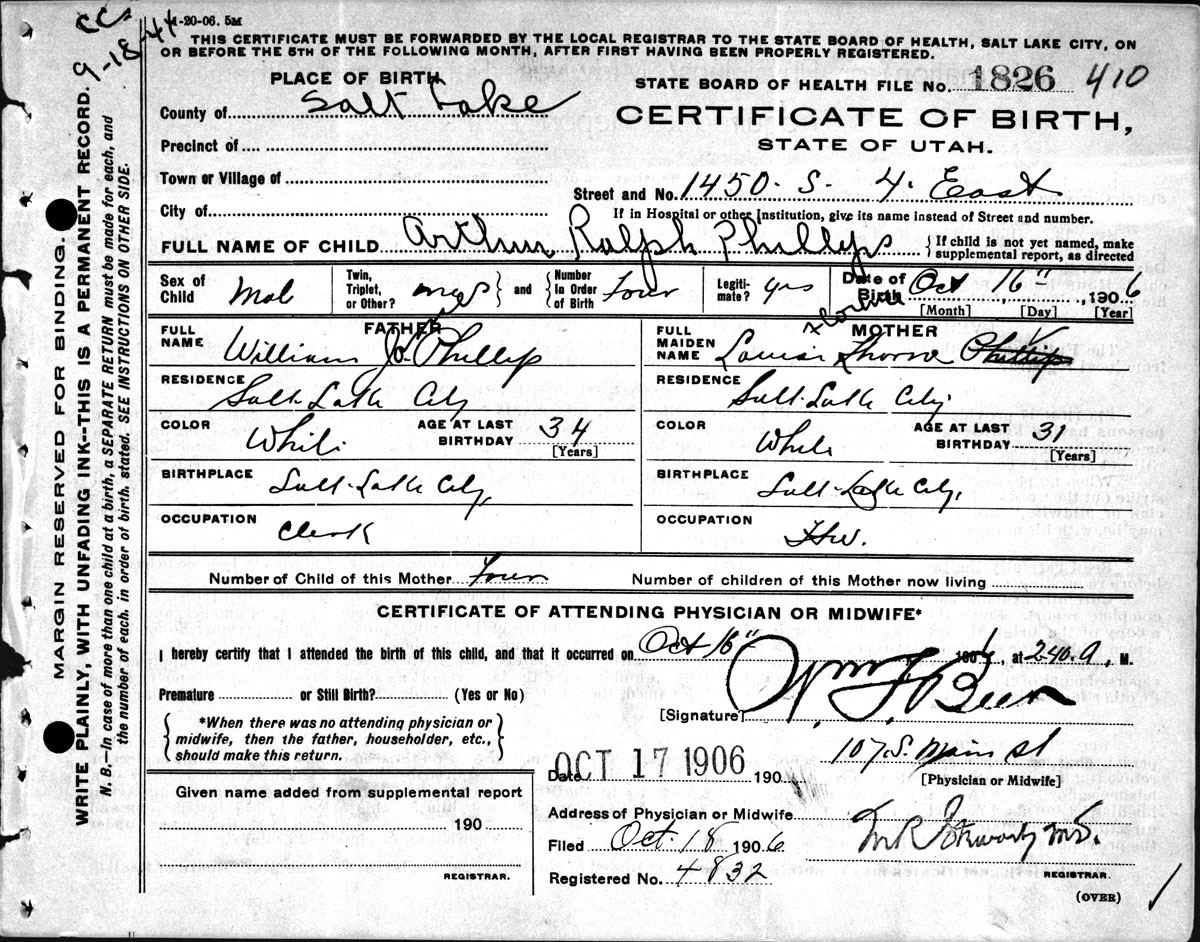 CC. 9-18-44
1-20-06. 5M
THIS CERTIFICATE MUST BE FORWARDED BY THE LOCAL REGISTRAR TO THE STATE BOARD OF HEALTH, SALT LAKE CITY, ON
OR BEFORE THE 5TH OF THE FOLLOWING MONTH, AFTER FIRST HAVING BEEN PROPERLY REGISTERED.
MARGIN RESERVED FOR BINDING.
WRITE PLAINLY, WITH UNFADING INK--THIS IS A PERMANENT RECORD.
N. B.—In case of more than one child at a birth, a SEPARATE RETURN must be made for each, and
the number of each, in order of birth, stated. SEE INSTRUCTIONS ON OTHER SIDE.
PLACE OF BIRTH
STATE BOARD OF HEALTH FILE No. 1826 410
County of Salt Lake
CERTIFICATE OF BIRTH,
STATE OF UTAH.
Precinct of
Town or Village of
Street and No. 1450. S. 4. East
City of
If in Hospital or other Institution, give its name instead of Street and number.
FULL NAME OF CHILD Arthur Ralph Phillips { If child is not yet named, make
supplemental report, as directed
Sex of Child Mal
Twin, Triplet, or Other? and Number In Order of Birth Four
Legitimate? yes
Date of Birth Oct 16" , 1906
[Month] [Day] [Year]
FATHER
FULL NAME William Jo Phillip
MOTHER
FULL MAIDEN NAME Louisa Phillips
RESIDENCE Salt Lake City
RESIDENCE Salt Lake City
COLOR White AGE AT LAST BIRTHDAY 34 [Years]
COLOR White AGE AT LAST BIRTHDAY 31 [Years]
BIRTHPLACE Salt Lake City,
BIRTHPLACE Salt Lake City,
OCCUPATION Clerk
OCCUPATION Hw.
Number of Child of this Mother Four Number of children of this Mother now living
CERTIFICATE OF ATTENDING PHYSICIAN OR MIDWIFE*
I hereby certify that I attended the birth of this child, and that it occurred on Oct 16" 1906, at 2.40. A, M.
Premature or Still Birth? (Yes or No)
[Signature] Wm F. Beer
*When there was no attending physician or
midwife, then the father, householder, etc.,
should make this return.
Date OCT 17 1906 190
107. S. Main St
[Physician or Midwife]
Given name added from supplemental report
190
REGISTRAR.
Address of Physician or Midwife
Filed Oct. 18 1906
M.D.
Registered No. 4832
REGISTRAR.
(OVER)